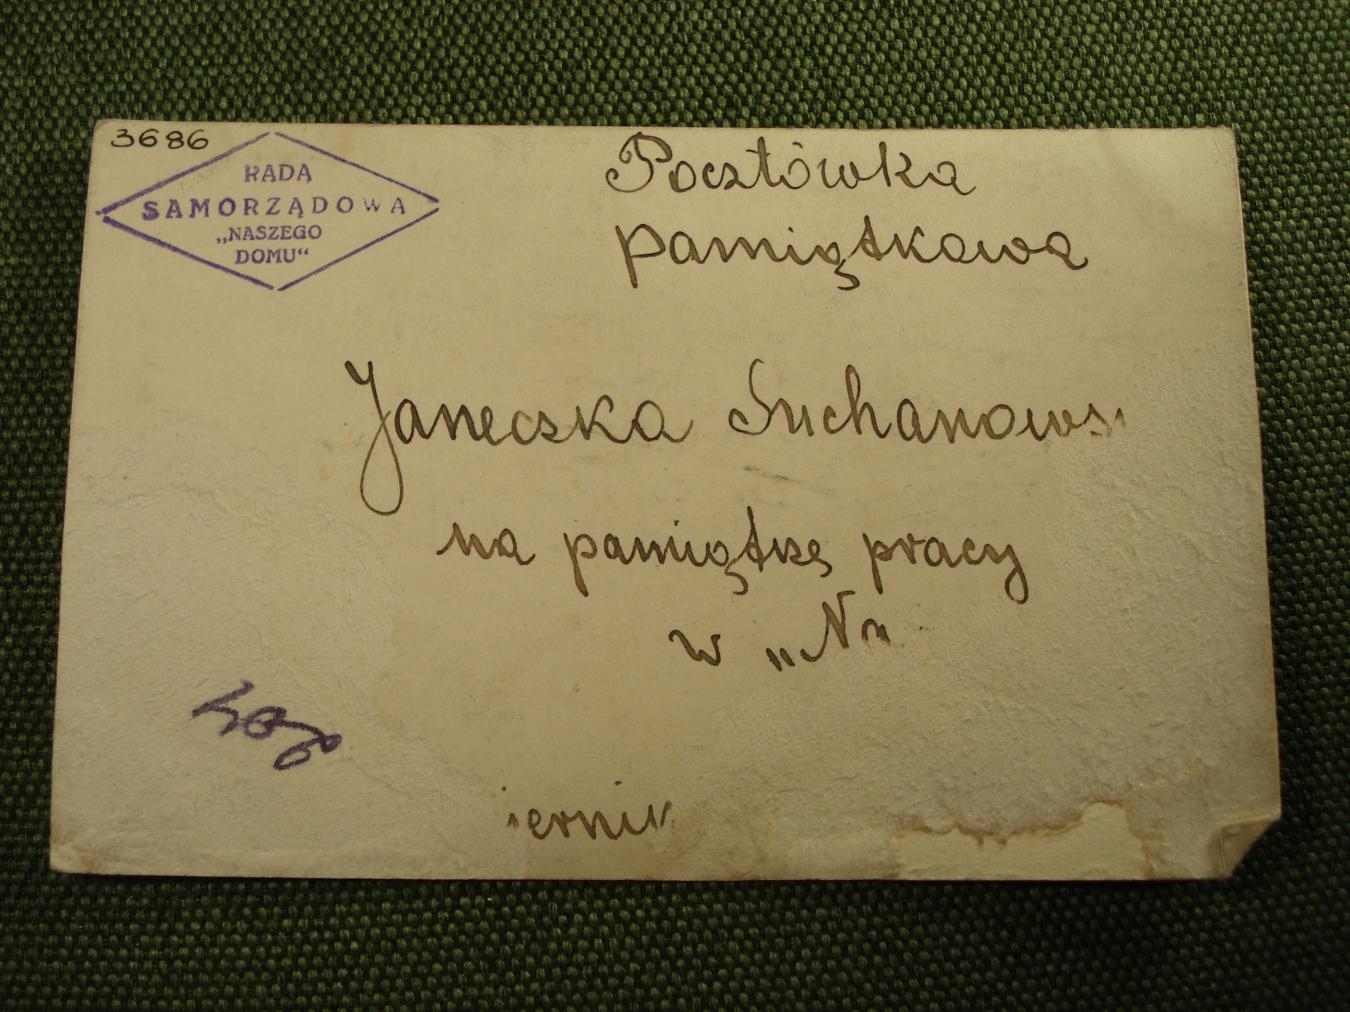 3686
RADA
SAMORZĄDOWA
„NASZEGO
DOMU“
Pocztówka
pamiątkowa
Janeczka Suchanows
na pamiątkę pracy
w „Na
iernik